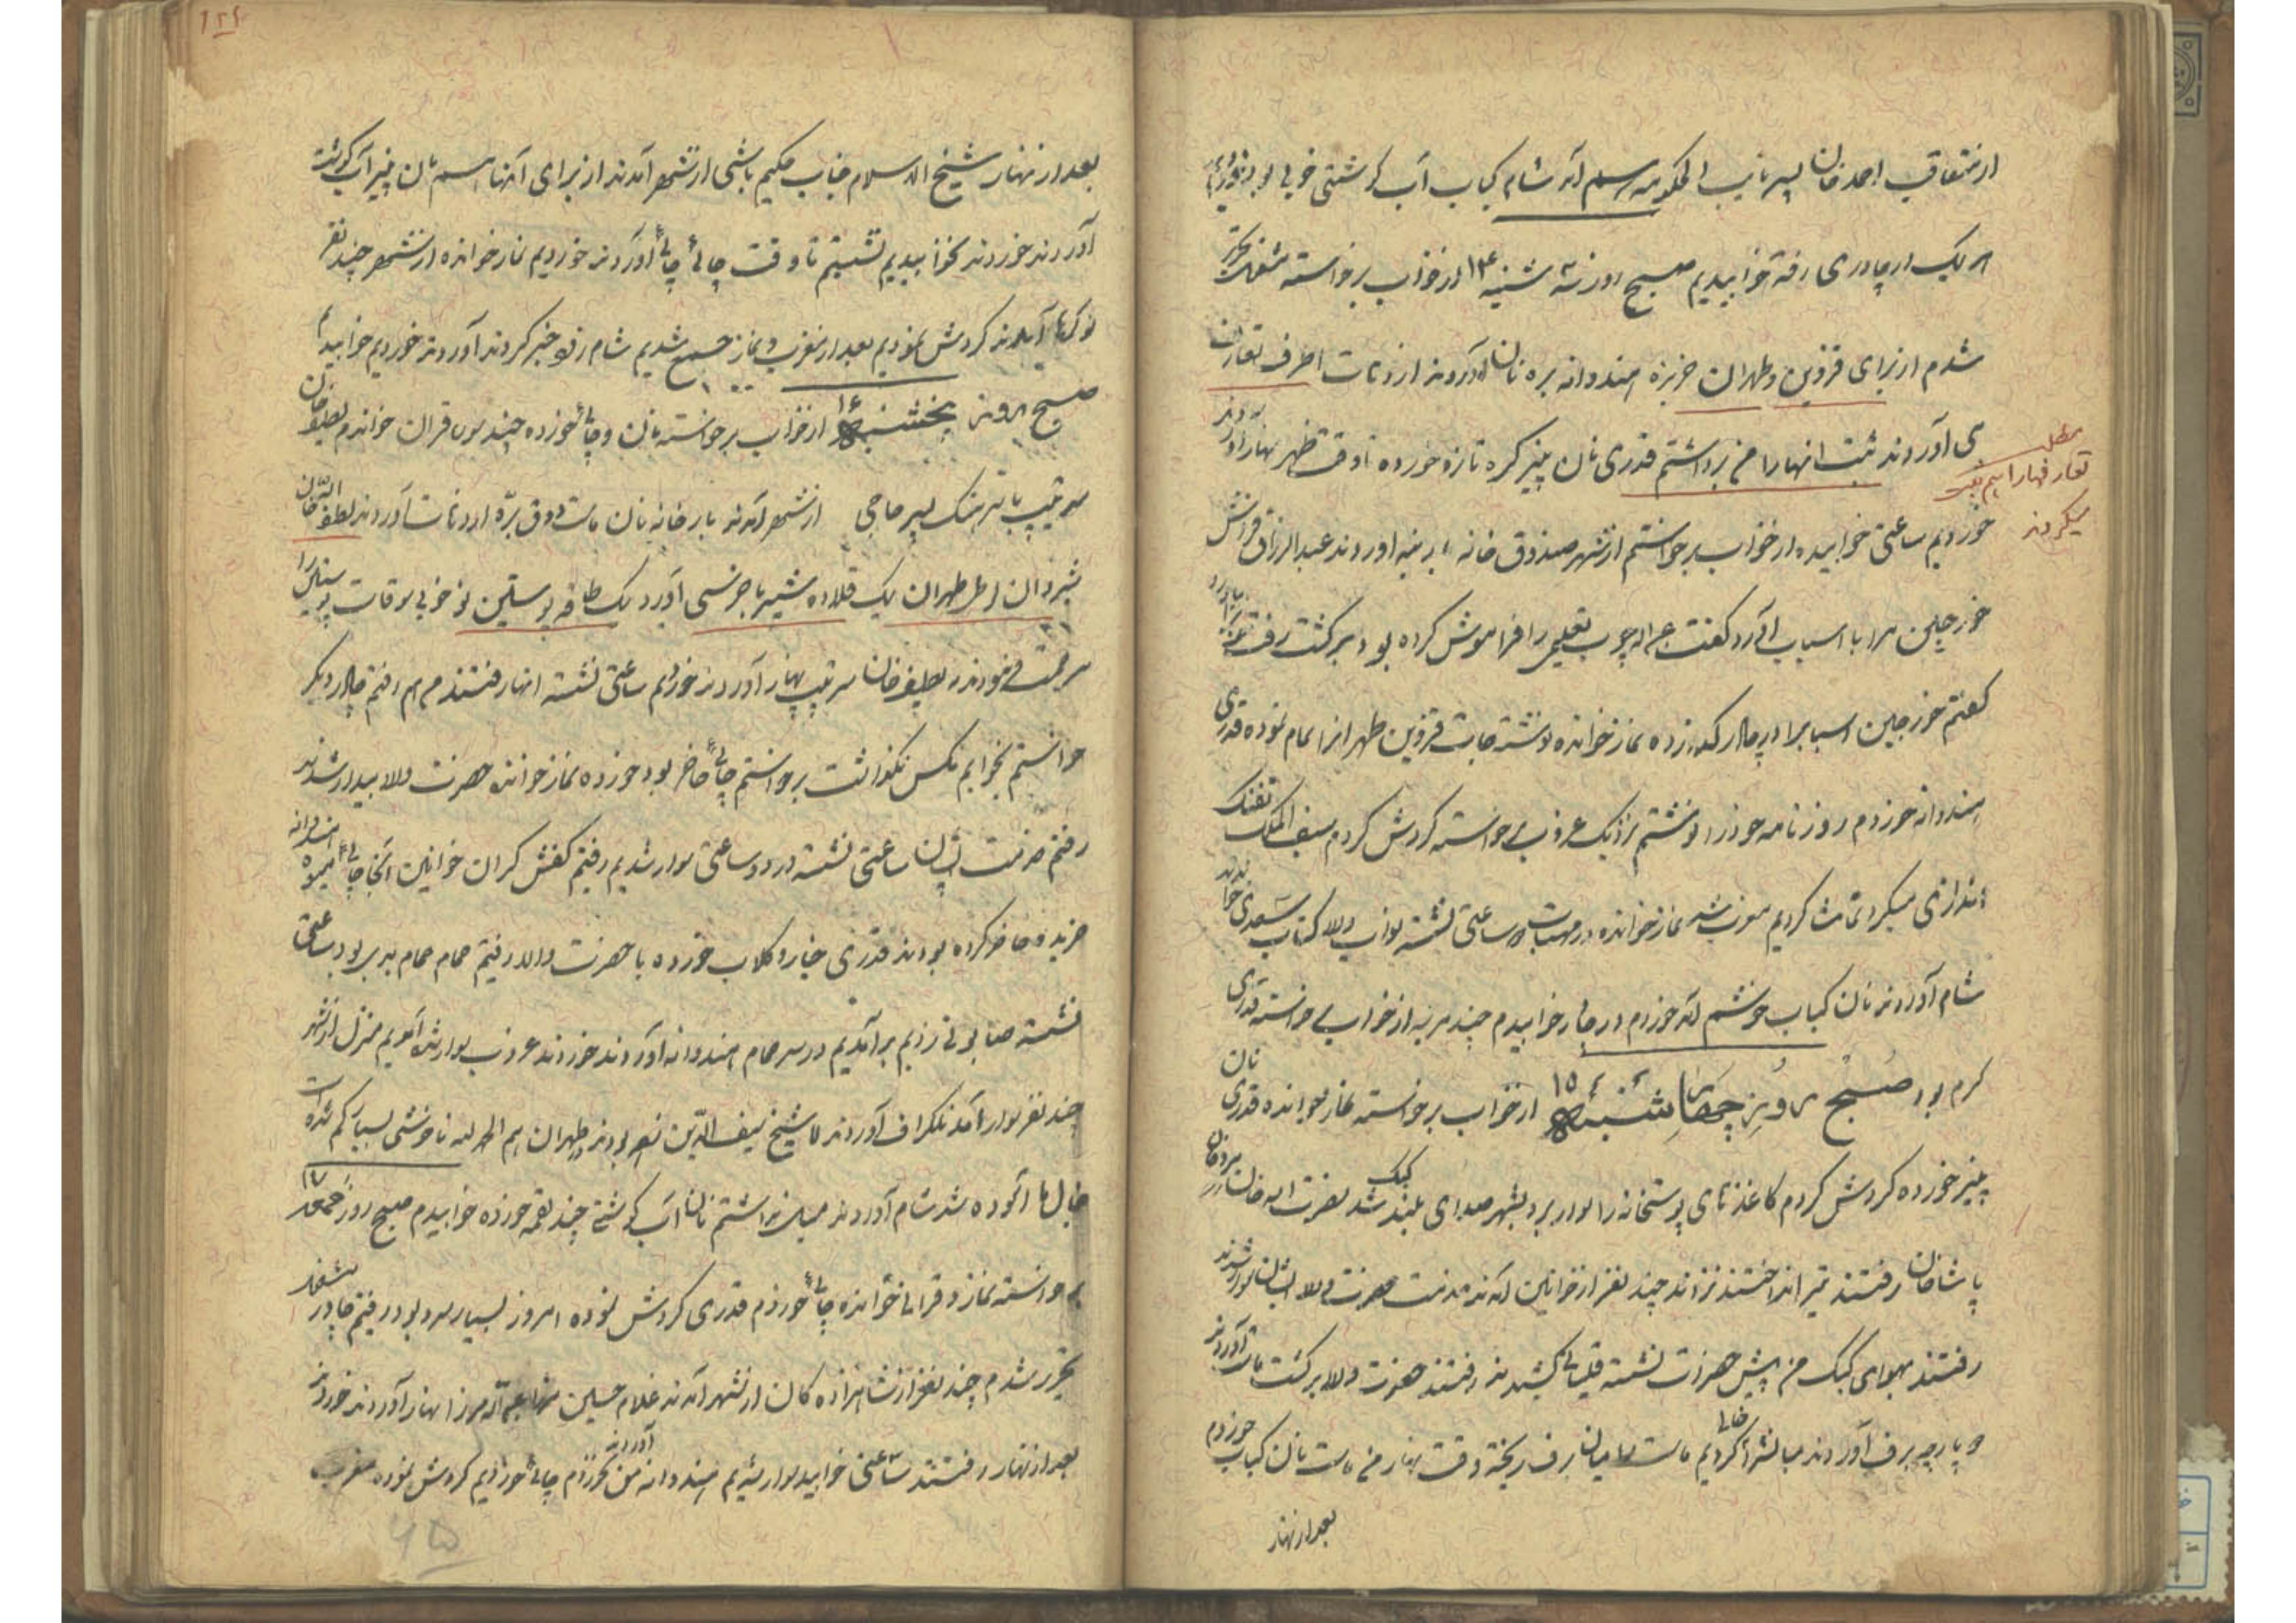 از متعاقب احمد خان پسر نایب الحکومه رسم آمد شام کباب آب گوشتی خوبی بود خوردیم
هر یک در چادری رفته خوابیدیم صبح روز سه شنبه ۱۴ از خواب برخاسته مشغول تحریر
شدم از برای قزوین و طهران خربزه هندوانه بره نان آوردند از دهات اطراف تعارف
می آوردند ثبت انهارا می برداشتم قدری نان پنیر کره تازه خورده تا وقت ظهر نهار آوردند
خوردیم ساعتی خوابیده از خواب برخواستم از شهر صندوق خانه اوردند عبدالرزاق فراش
خورجین مرد با اسباب آورد گفت چوب تعلیمی را فراموش کرده بود برگشت رفت
گفتم خورجین اسبابرا در چادر زده نماز خوانده نوشته جات قزوین طهرانرا تمام نموده قدری
هندوانه خوردم روزنامه خودرا نوشتم نزدیک غروب برخواسته گردش کردم سیف الملک تفنگ
اندازی میکرد تماشا کردیم مغرب شد نماز خوانده در مهتاب ساعتی نشسته نواب والا کتاب سعدی خواندند
شام آوردند نان کباب خوشمزه خوردم در چادر خوابیدم چند مرتبه از خواب برخواسته قدری
گرم بود صبح روز چهارشنبه ۱۵ از خواب برخواسته نماز خوانده قدری نان
پنیر خورده گردش کردم کاغذهای پوستخانه را سوار برد بشهر صدای کبک بلند شد نصرت اله خان
پاشا خان رفتند تیر انداختند نزدند چند نفر از خوانین آمدند خدمت حضرت والا ایشان سوار شدند
رفتند بهوای کبک من پیش حضرات نشسته قلیانی کشیدند رفتند حضرت والا برگشت ماست آوردند
دو پارچه برف آوردند میانشرا خالی کردیم ماست را میان برف ریخته وقت نهار من ماست نان کباب خوردم
بعد از نهار
مطلب
تعارفهارا هم ثبت
میکردند
۱۲۶
بعد از نهار شیخ الاسلام جناب حکیم باشی از شهر آمدند از برای آنها هم نان پنیر آب گوشت
آوردند خوردند نخوابیدیم نشستیم تا وقت چائی چائی آوردند خوردیم نماز خوانده از شهر چند نفر
نوکرها آمدند گردش نمودیم بعد از مغرب و نماز جمع شدیم شام رفته خبر کردند آوردند خوردیم خوابیدیم
صبح روز پنجشنبه ۱۶ از خواب برخواسته نان و چائی خورده چند سوره قران خواندم لطیف خان
سرتیپ با پسر حاجی از شهر آمدند بارخانه نان ماست دوق بره از دهات آوردند لطف الله خان
شیروان از طهران یک قلاده شیر با جرسی آورد یک طاقه پوستین نو خوبی سوقات پوستین را
مرحمت فرمودند لطیف خان سرتیپ نهار آوردند خوردیم ساعتی نشسته انها رفتند من هم رفتم چادر دیگر
خواستم بخوابم مگس نگذاشت برخواستم چائی حاضر بود خورده نماز خوانده حضرت والا بیدار شدند
رفتم خدمت ایشان ساعتی نشسته در دو ساعتی سوار شدیم رفتیم کفش کران خوانین آنجا چائی میوه هندوانه
خربزه حاضر کرده بودند قدری خیار و گلاب خورده با حضرت والا رفتیم حمام حمام بدی بود ساعتی
نشسته صابونی زدیم برآمدیم در سر حمام هندوانه آوردند خوردند غروب سوار شده آمدیم منزل از شهر
چند نفر سوار آمد تلگراف آوردند شیخ سیف الدین بودند طهران هم الحمد لله ناخوشی بسیار کم شده است
خیال ها آسوده شد شام آوردند میل نداشتم نان آب گوشتی چند لقمه خورده خوابیدم صبح روز جمعه ۱۷
برخواسته نماز و قرانی خوانده چائی خوردم قدری گردش نموده امروز بسیار سرد بود رفتم چادر مشغول
تحریر شدم چند نفر از شاهزاده گان از شهر آمدند غلام حسین میرزا نهار آوردند خوردند
بعد از نهار رفتند ساعتی خوابید سوار شدیم هندوانه آوردند من نخوردم چائی خوردیم گردش نموده مغرب
۶۵